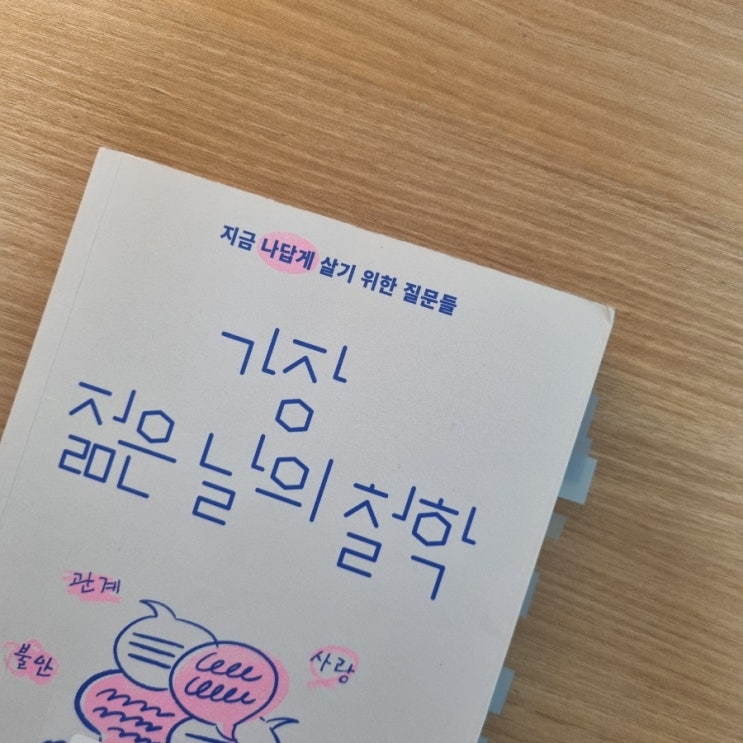 지금 나답게 살기 위한 질문들
가장
젊은 날의 철학
관계
불안
사랑